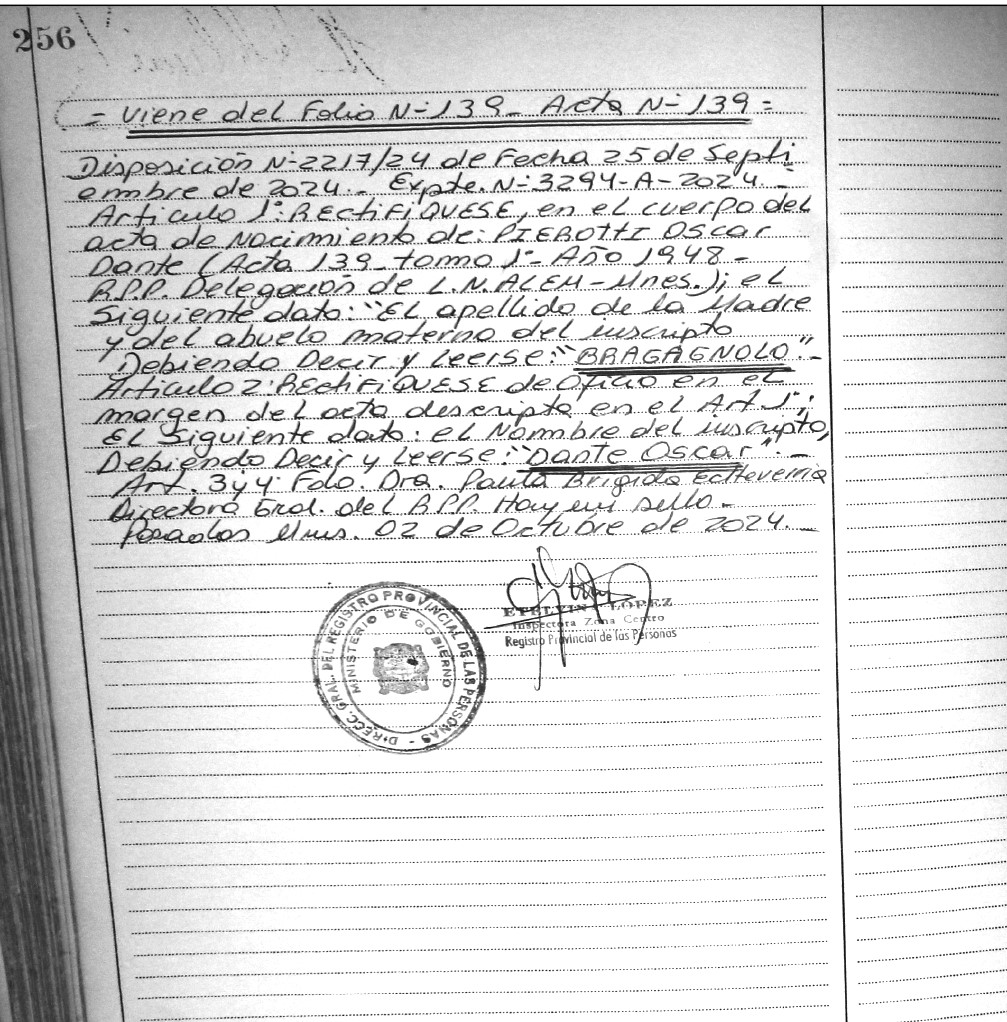 256
= Viene del Folio N-139_ Acta N-139 =
Disposición N-2217/24 de Fecha 25 de Septi
embre de 2024.- Expte. N-3294-A-2024.-
Articulo 1: RECtiFIQUESE, en el cuerpo del
acta de Nacimiento de: PIEROTTI Oscar
Dante (Acta 139_ tomo 1- Año 1948 -
R.P.P. Delegación de L.N. ALEM-Mnes.); el
Siguiente dato: "EL apellido de la Madre
y del abuelo materno del inscripto
Debiendo Decir y Leerse: "BRAGAGNOLO".-
Articulo 2: RECtiFiQUESE de Oficio en el
margen del acta descripta en el Art 1:;
EL Siguiente dato: el Nombre del inscripto,
Debiendo Decir y Leerse: "Dante Oscar".-
Art. 3 y 4 Fdo. Dra. Paula Brigida Echeverria
Directora Gral. del R.P.P. Hay un sello.-
Posadas Mnes. 02 de Octubre de 2024.-
ETELVINA LOPEZ
Inspectora Zona Centro
Registro Provincial de las Personas
DIRECC. GRAL. DEL REGISTRO PROVINCIAL DE LAS PERSONAS -
MINISTERIO DE GOBIERNO